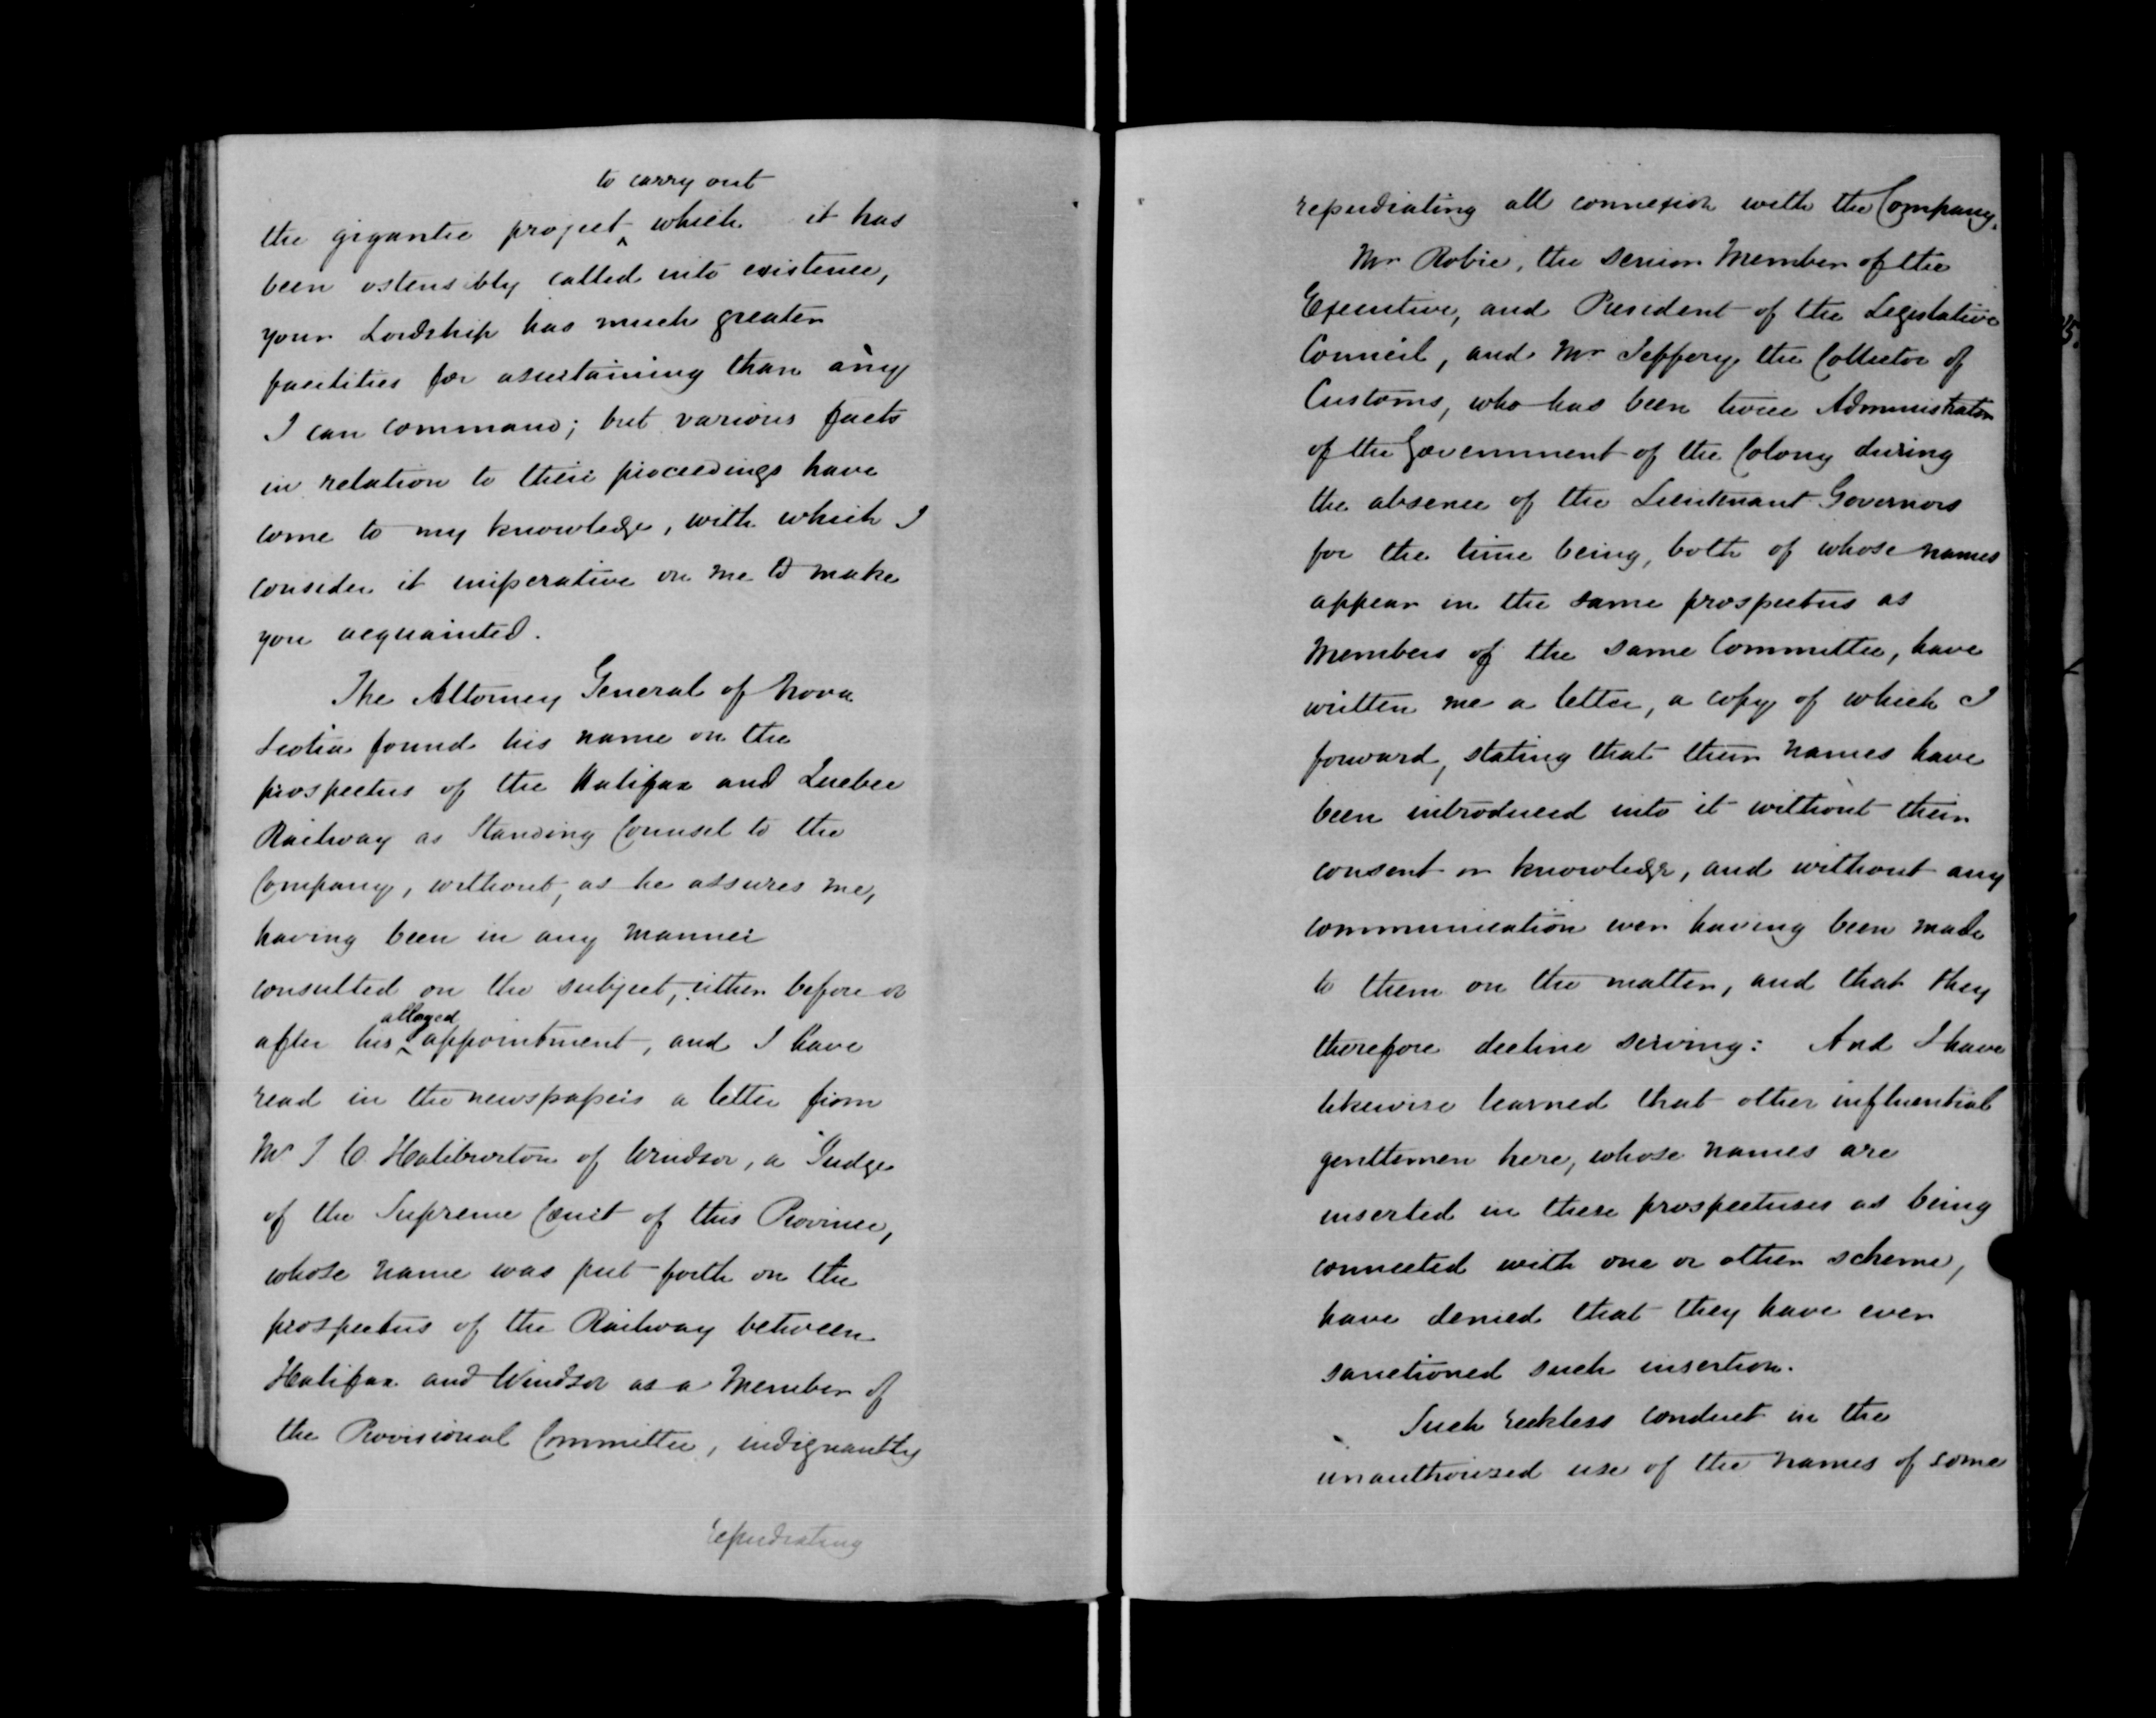 to carry out
the gigantic project ^ which it has
been ostensibly called into existence,
your Lordship has much greater
facilities for ascertaining than any
I can command; but various facts
in relation to their proceedings have
come to my knowledge, with which I
consider it imperative on me to make
you acquainted.
The Attorney General of Nova
Scotia found his name on the
prospectus of the Halifax and Quebec
Railway as Standing Counsel to the
Company, without, as he assures me,
having been in any manner
consulted on the subject, either before or
alleged
after his ^ appointment, and I have
read in the newspapers a letter from
Mr T C Haliburton of Windsor, a Judge
of the Supreme Court of this Province,
whose name was put forth on the
prospectus of the Railway between
Halifax and Windsor as a Member of
the Provisional Committee, indignantly
repudiating
repudiating all connexion with the Company.
Mr Robie, the senior Member of the
Executive, and President of the Legislative
Council, and Mr Jeffery the Collector of
Customs, who has been twice Administrator
of the Government of the Colony during
the absence of the Lieutenant Governors
for the time being, both of whose names
appear in the same prospectus as
Members of the same Committee, have
written me a letter, a copy of which I
forward, stating that their names have
been introduced into it without their
consent or knowledge, and without any
communication ever having been made
to them on the matter, and that they
therefore decline serving: And I have
likewise learned that other influential
gentlemen here, whose names are
inserted in these prospectuses as being
connected with one or other scheme,
have denied that they have ever
sanctioned such insertion.
Such reckless conduct in the
unauthorized use of the names of some